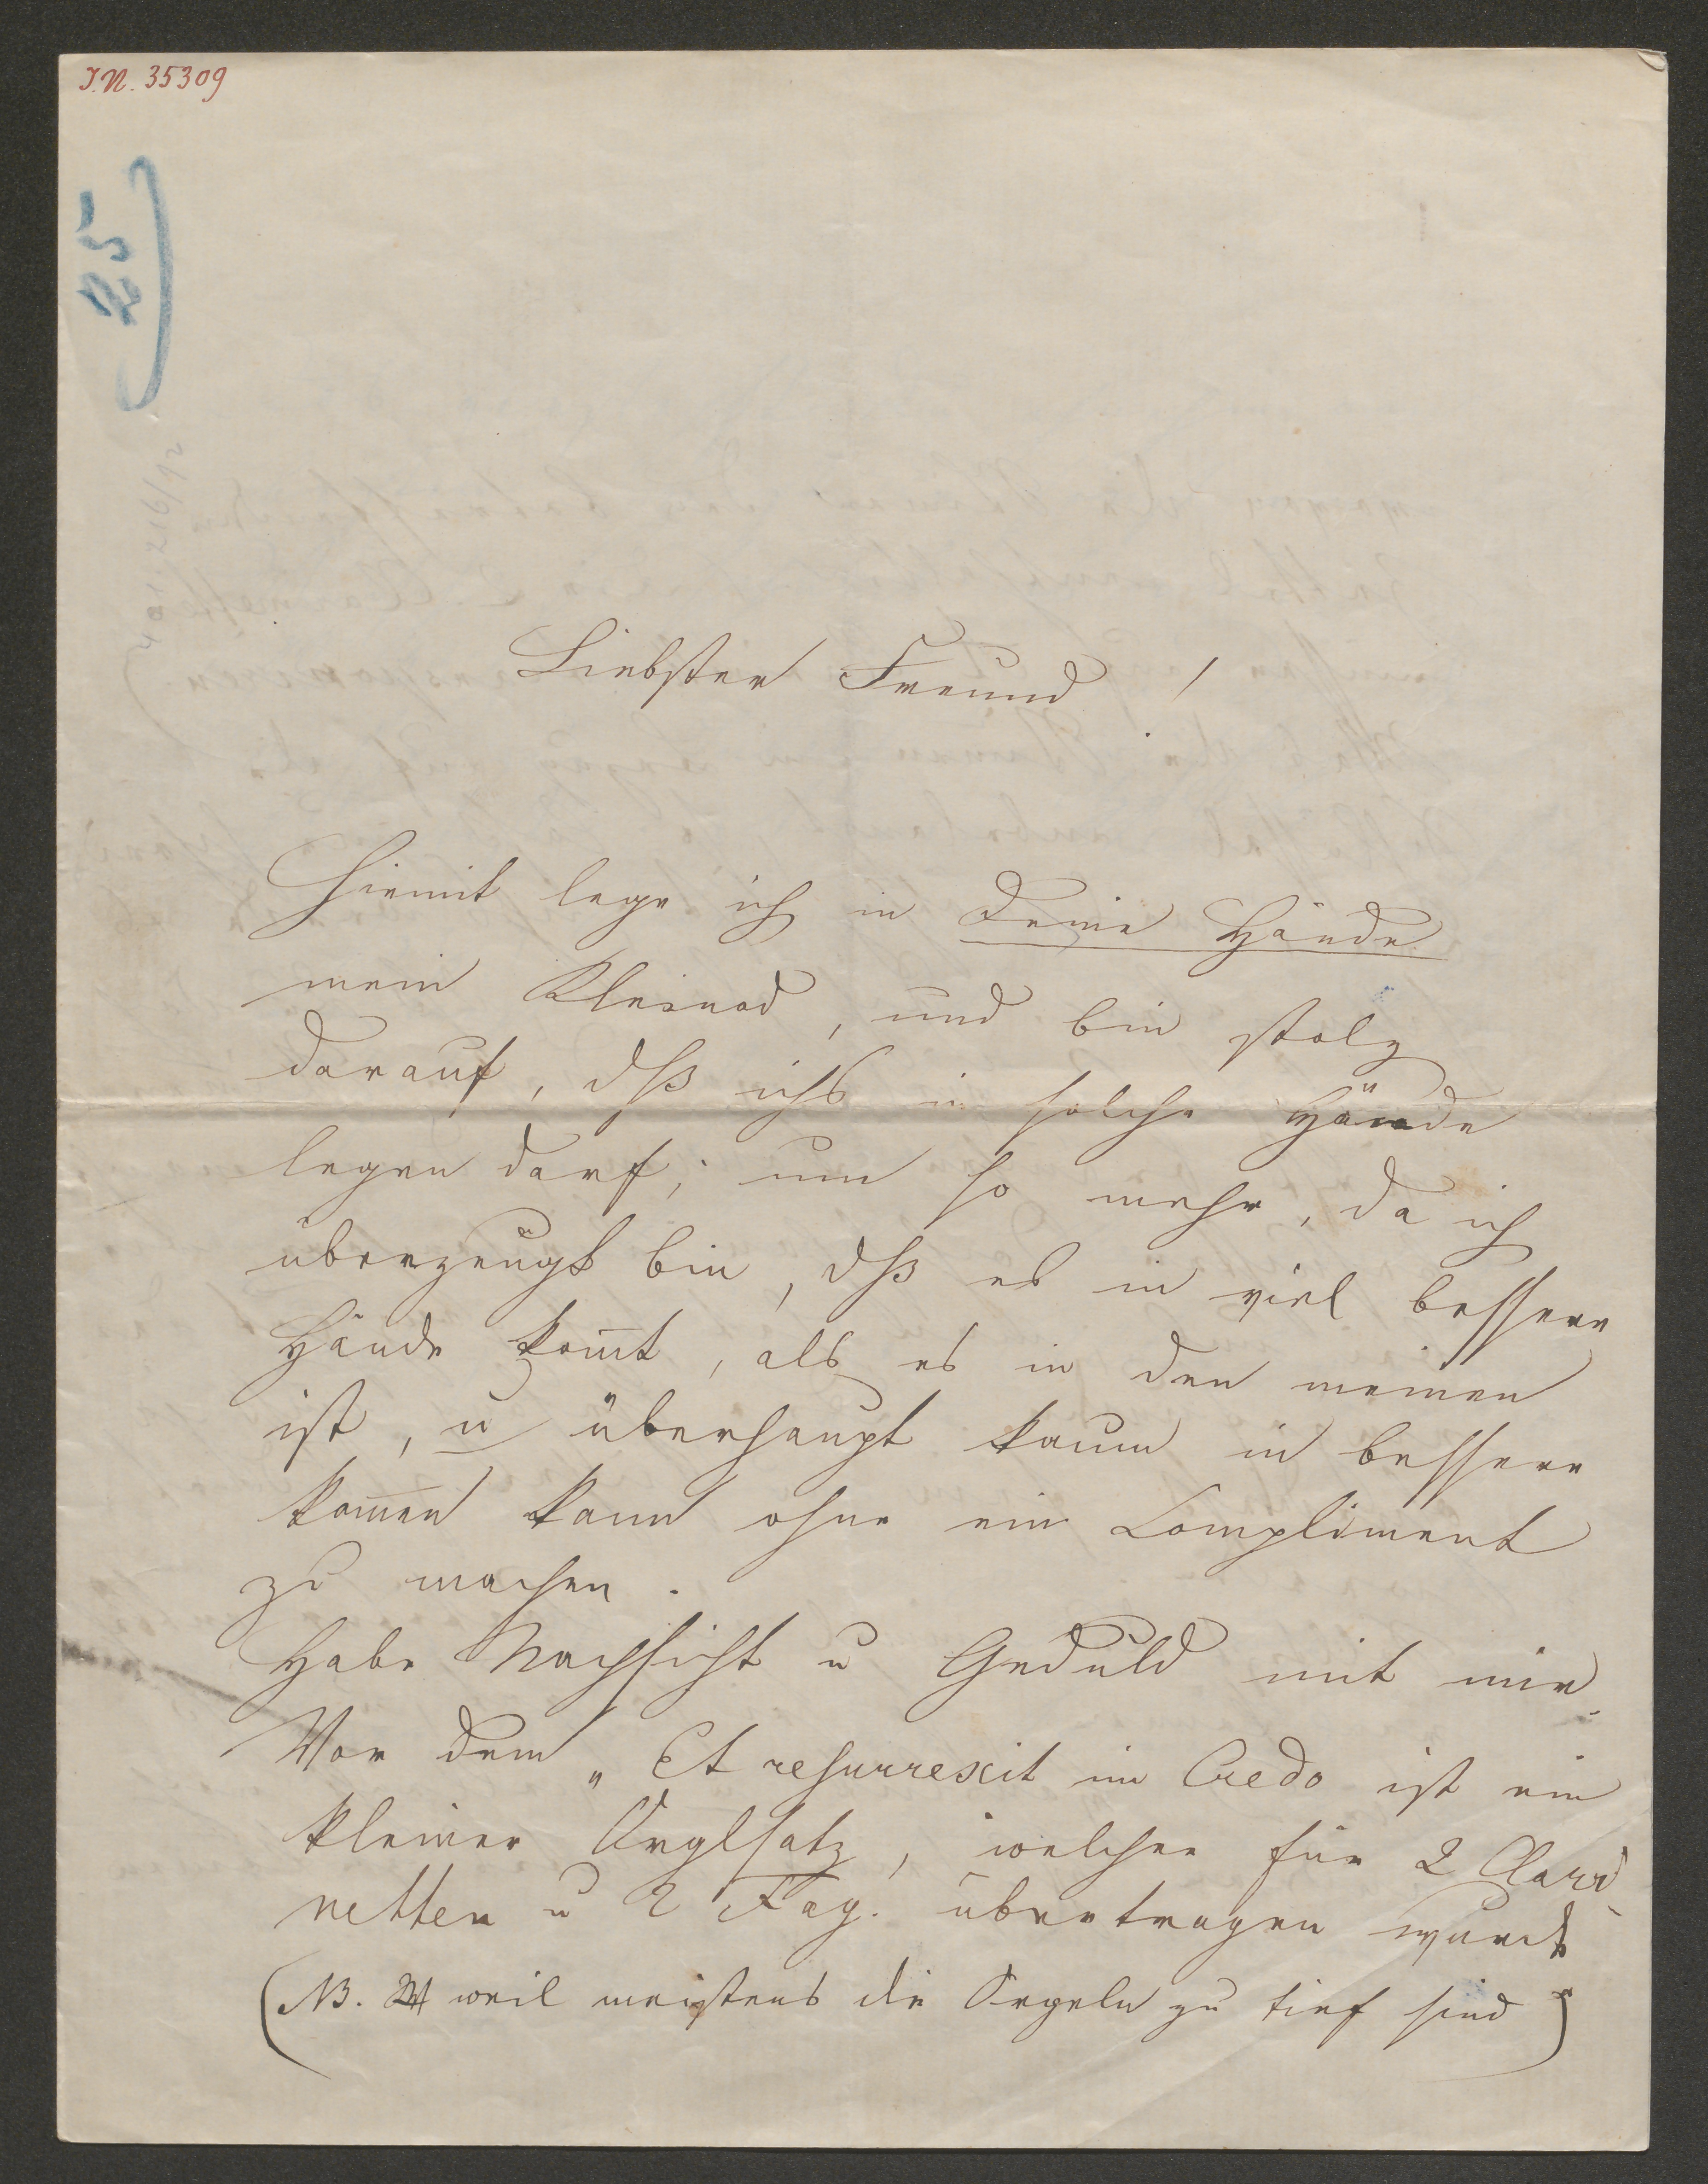 I.N. 35309
25
Liebster Freund!
Hiemit lege ich in Deine Hände
mein Kleinod, und bin stolz
darauf, dß ichs in solche Hände
legen darf; um so mehr, da ich
überzeugt bin, dß es in viel bessere
Hände kom̄t, als es in den meinen
ist, u überhaupt kaum in bessere
kom̄en kann ohne ein Compliment
zu machen.
Habe Nachsicht u Geduld mit mir.
Vor dem „Et resurrexit im Credo ist ein
kleiner Orglsatz, welcher für 2 Clari
netten u 2 Fag. übertragen wurde
(NB. weil meistens die Orgeln zu tief sind)